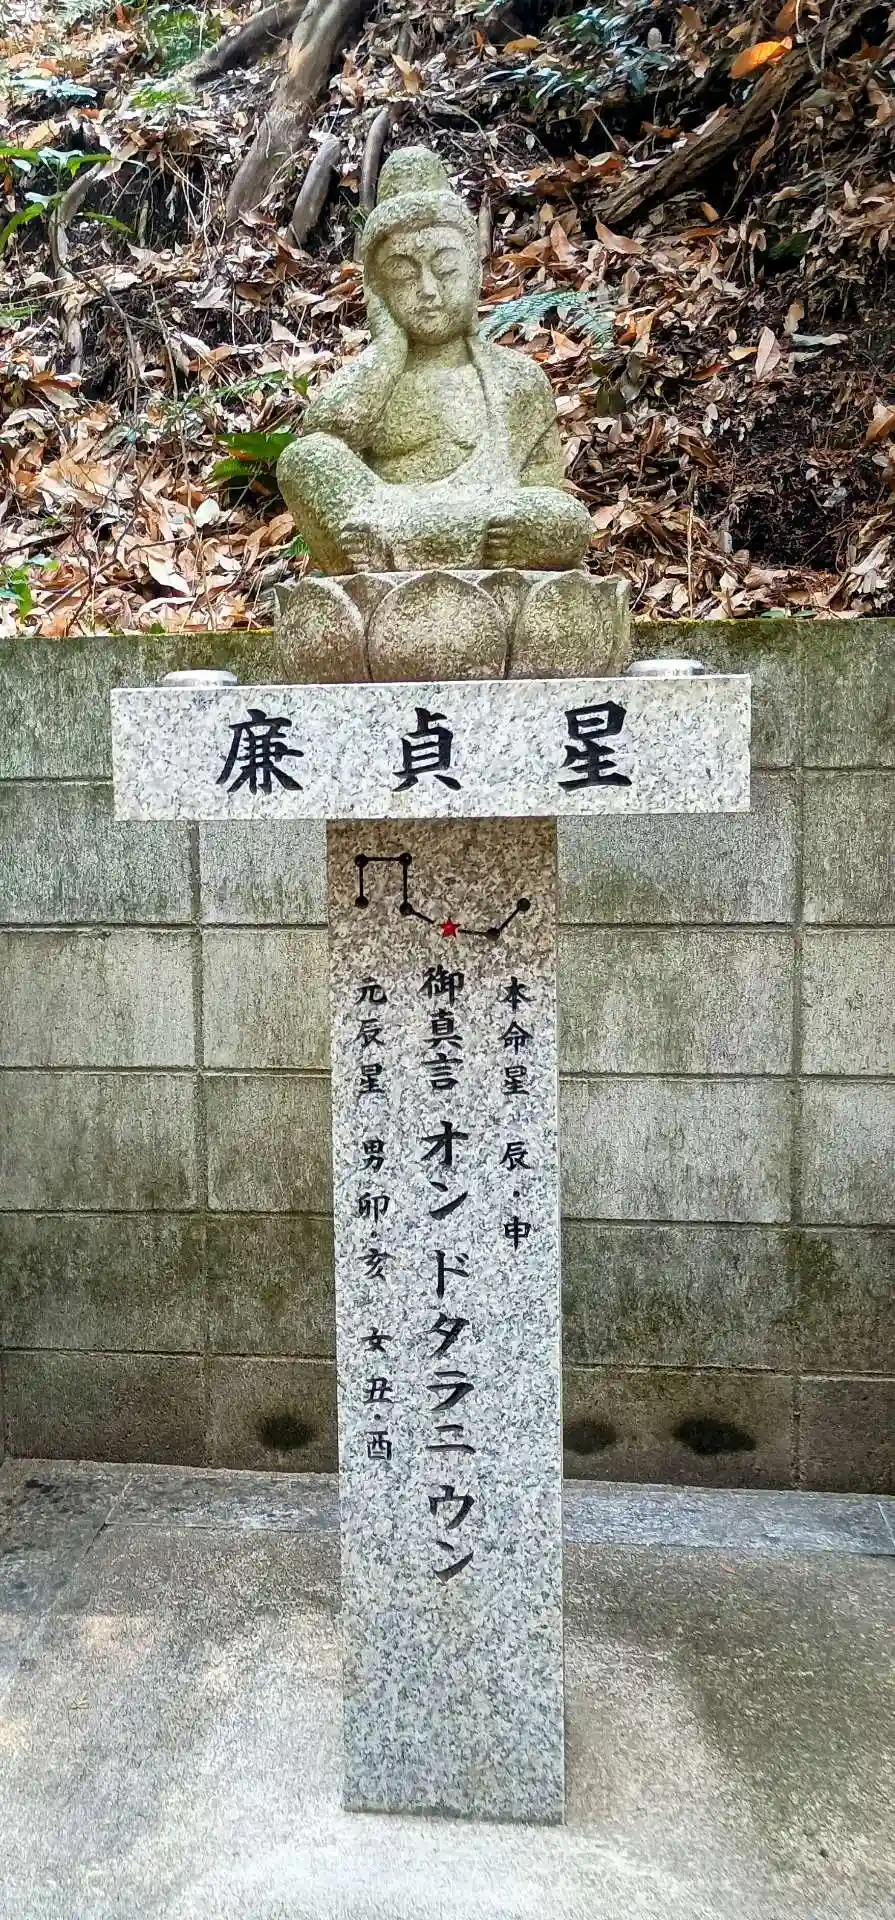 廉貞星
本命星 辰・申
御真言 オン ドタラニ ウン
元辰星 男 卯・亥 女 丑・酉